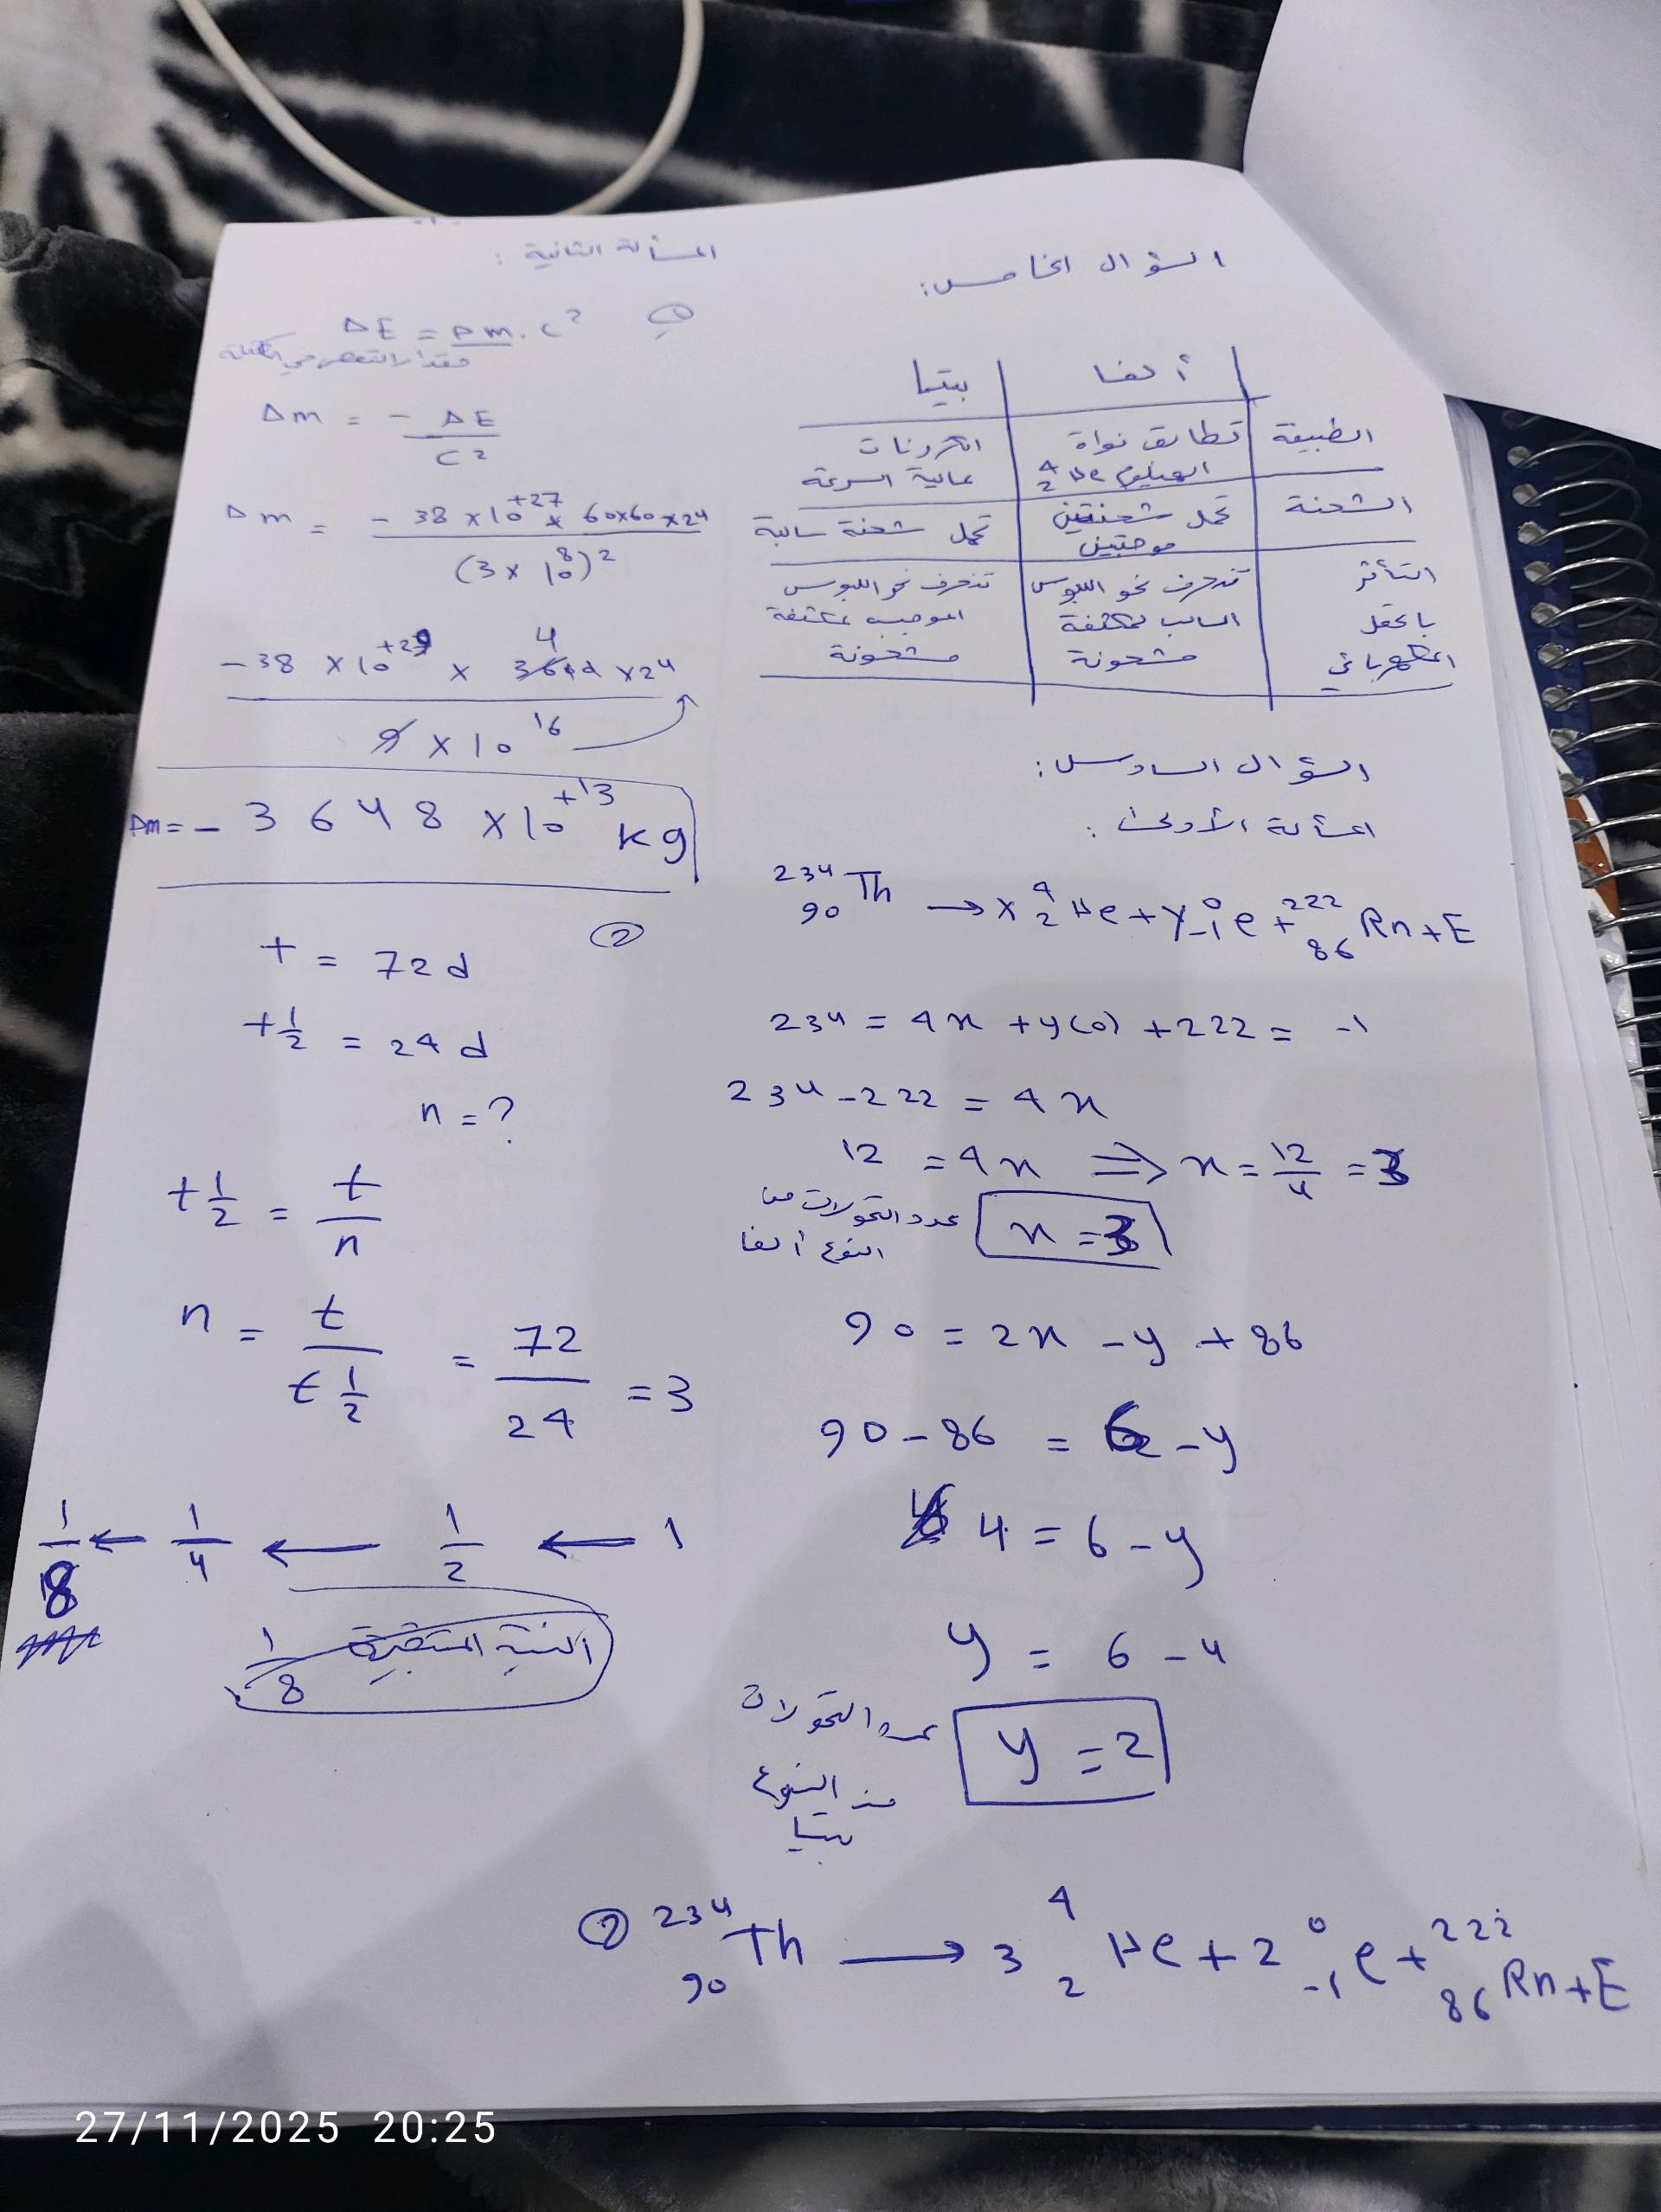 السؤال الخامس:
ألفا | بيتا
الطبيعة | تطابق نواة الهيليوم ⁴₂He | الكترونات عالية السرعة
الشحنة | تحمل شحنتين موجبتين | تحمل شحنة سالبة
التأثر بالحقل الكهربائي | تنحرف نحو اللبوس السالب لمكثفة مشحونة | تنحرف نحو اللبوس الموجب لمكثفة مشحونة
السؤال السادس:
المسألة الأولى:
²³⁴₉₀Th → x ⁴₂He + y ⁰₋₁e + ²²²₈₆Rn + E
234 = 4x + y(0) + 222 = -1
234 - 222 = 4x
12 = 4x ⇒ x = 12/4 = 3
x = 3 عدد التحولات من
النوع ألفا
90 = 2x - y + 86
90 - 86 = 6 - y
4 = 6 - y
y = 6 - 4
y = 2 عدد التحولات
من النوع
بيتا
② ²³⁴₉₀Th → 3 ⁴₂He + 2 ⁰₋₁e + ²²²₈₆Rn + E
المسألة الثانية:
① ΔE = Δm . c²
مقدار النقص في الكتلة
Δm = - ΔE / c²
Δm = - 38 x 10⁺²⁷ x 60x60x24 / (3 x 10⁸)²
- 38 x 10⁺²⁹ x 4 x 24 / 9 x 10¹⁶
Δm = - 3648 x 10⁺¹³ kg
②
t = 72 d
t ½ = 24 d
n = ?
t ½ = t / n
n = t / t ½ = 72 / 24 = 3
1 ← 1/2 ← 1/4 ← 1/8
النسبة المتبقية 1/8
27/11/2025 20:25